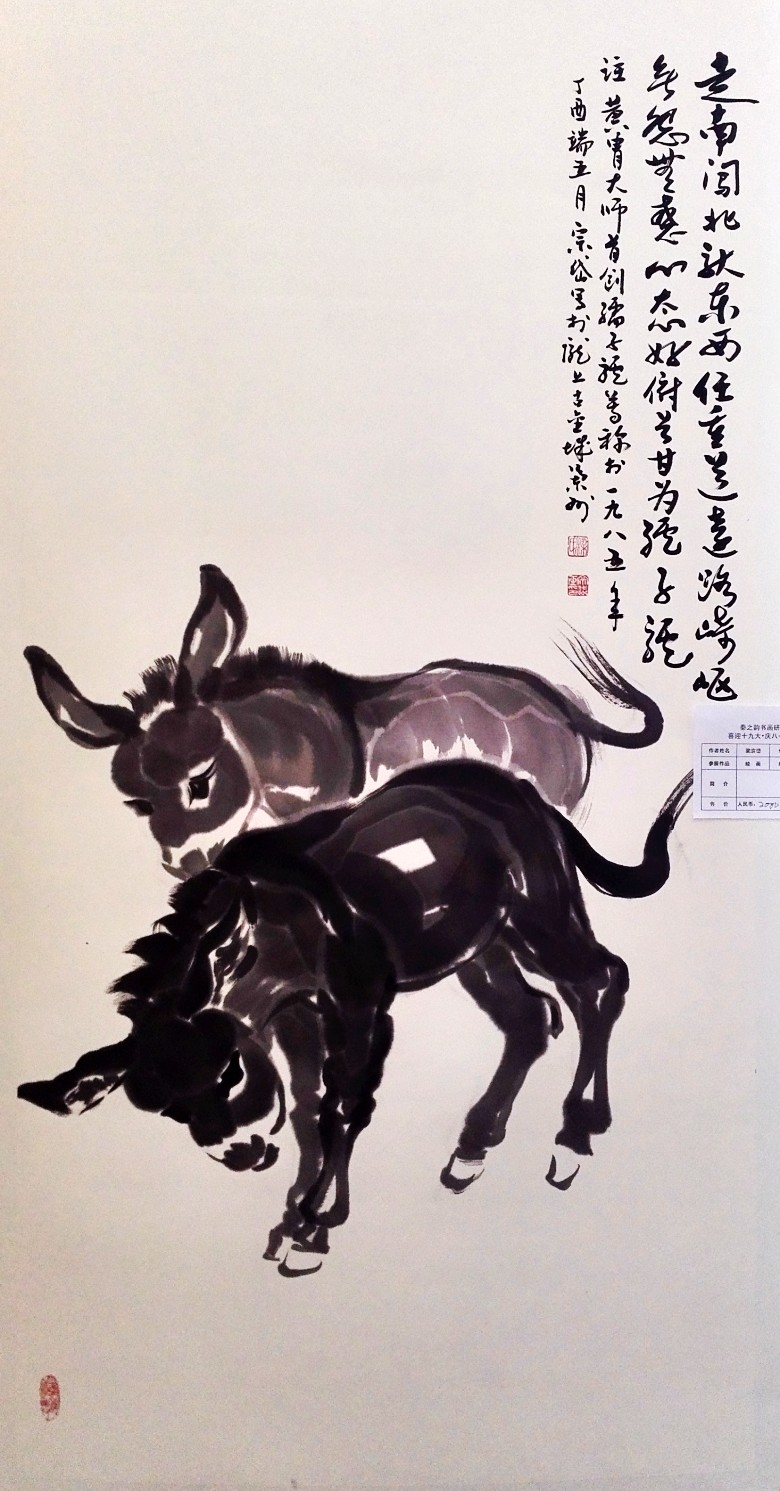 走南闯北驮东西任重道远路崎岖
无怨無心态好俯首甘为孺子驢
註 黄胄大师首创孺子驢尊称於一九八五年
丁酉端五月 宗岱写於隴上古金城兰州
秦之韵书画研
喜迎十九大·庆八·
作者姓名 宗岱
参展作品 绘画
简介
售价 人民币：